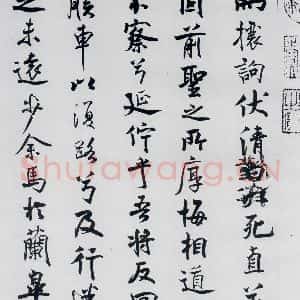 而攘詢伏清白以死直兮
固前聖之所厚悔相道
不察兮延佇乎吾將反回
朕車以復路兮及行迷
之未遠步余馬於蘭皋
Shufawang.CN